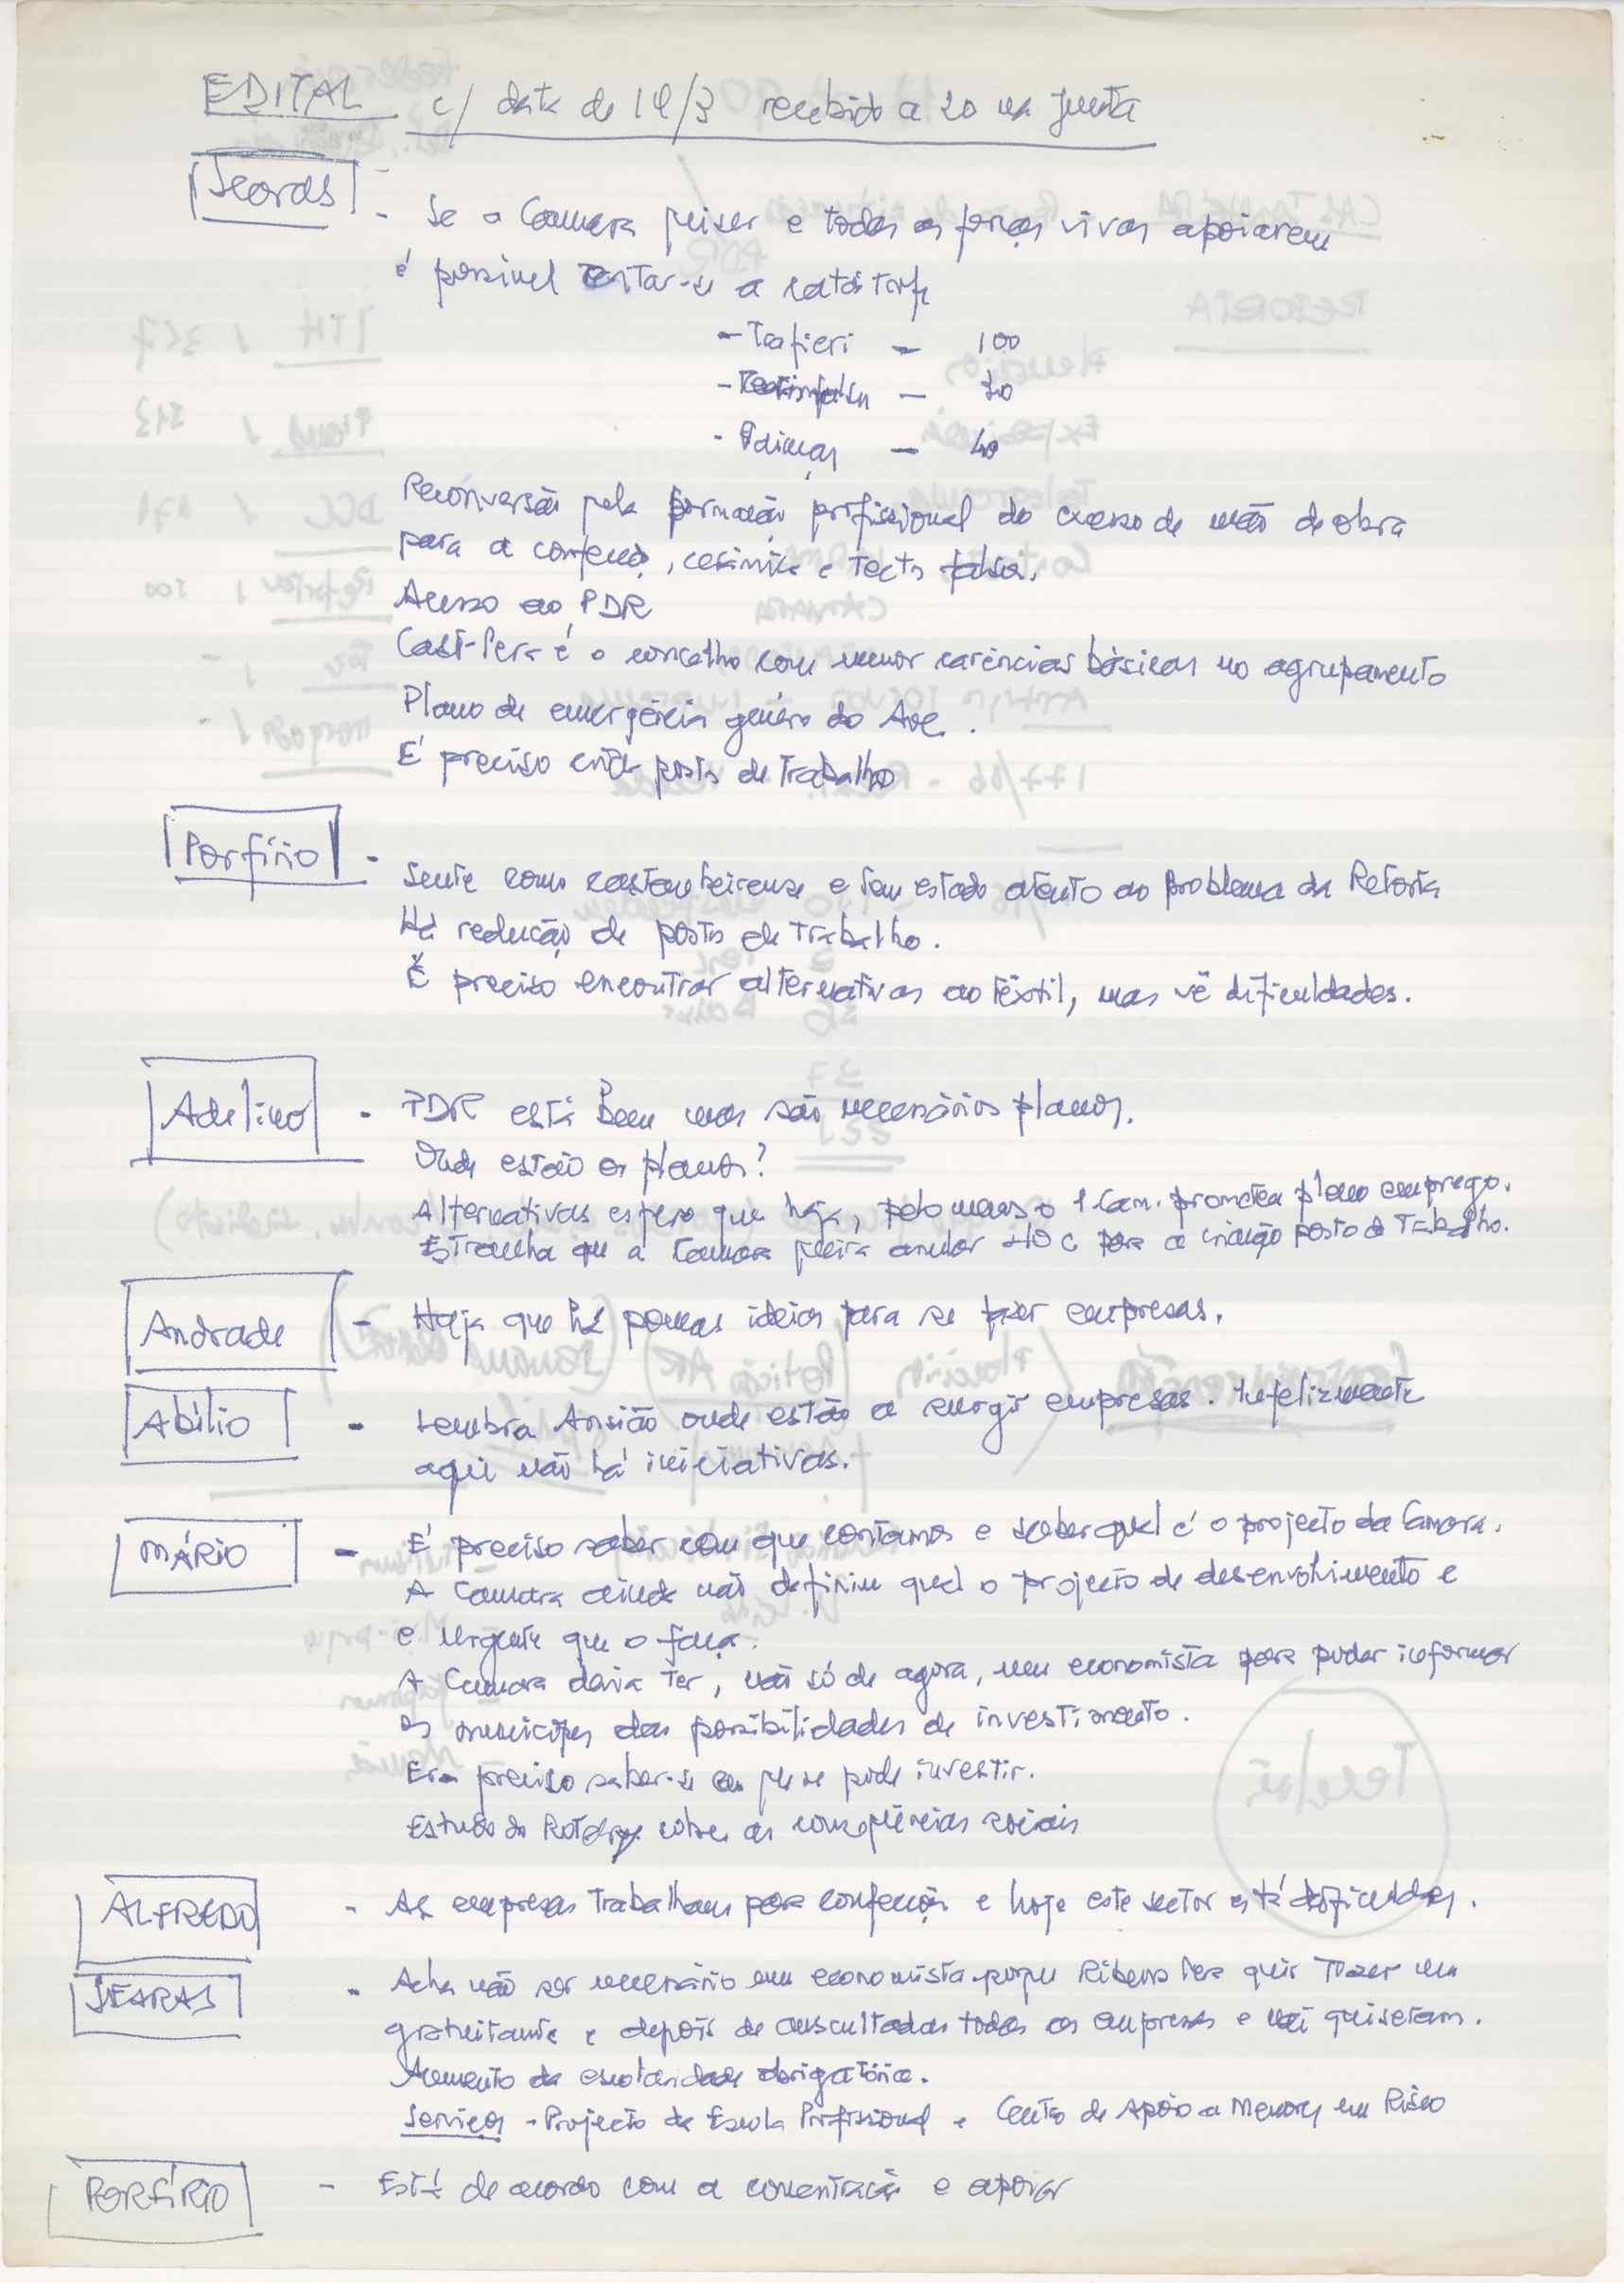 EDITAL c/ data de 14/3 recebido a 20 na Junta
Searas - Se a Camara quiser e todas as forças vivas apoiarem
é possivel evitar-se a catástrofe
- Trafieri - 100
- 30
- - 40
Reconversão pela formação profissional do excesso de mão de obra
para a confecção, cerâmica e tectos falsos.
Acesso ao PDR
Cast-Pera é o concelho com menor carências básicas no agrupamento
Plano de emergência género do Ave.
É preciso criar postos de Trabalho
Porfírio - Sente como castanheirense e tem estado atento ao problema da Retorta
Há redução de postos de Trabalho.
É preciso encontrar alternativas ao têxtil, mas vê dificuldades.
Adelino - PDR está bem mas são necessários planos.
Onde estão os planos?
Alternativas espero que haja, pelo menos a Cam. prometeu pleno emprego.
Estranha que a Camara queira anular para a criação posto de Trabalho.
Andrade - Haja que há poucas ideias para se fazer empresas.
Abílio - Lembra Ansião onde estão a surgir empresas. Infelizmente
aqui não há iniciativas.
MÁRIO - É preciso saber com que contamos e saber qual é o projecto da Camara.
A Camara ainda não definiu qual o projecto de desenvolvimento e
e urgente que o faça.
A Camara devia ter, não só de agora, um economista para puder informar
os municipes das possibilidades de investimento.
Era preciso saber-se em que se pode investir.
Estudo do Rotary sobre as consequências sociais
ALFREDO - As empresas trabalham para confecção e hoje este sector está dificuldades.
SEARAS - Acha não ser necessário um economista porque Ribeira Pera quis Trazer um
gratuitamente e depois de auscultadas todas as empresas e não quiseram.
Aumento da escolaridade obrigatória.
Serviços - Projecto da Escola Profissional e Centro de Apoio a Menores em Risco
PORFÍRIO - Está de acordo com a concentração e apoiar